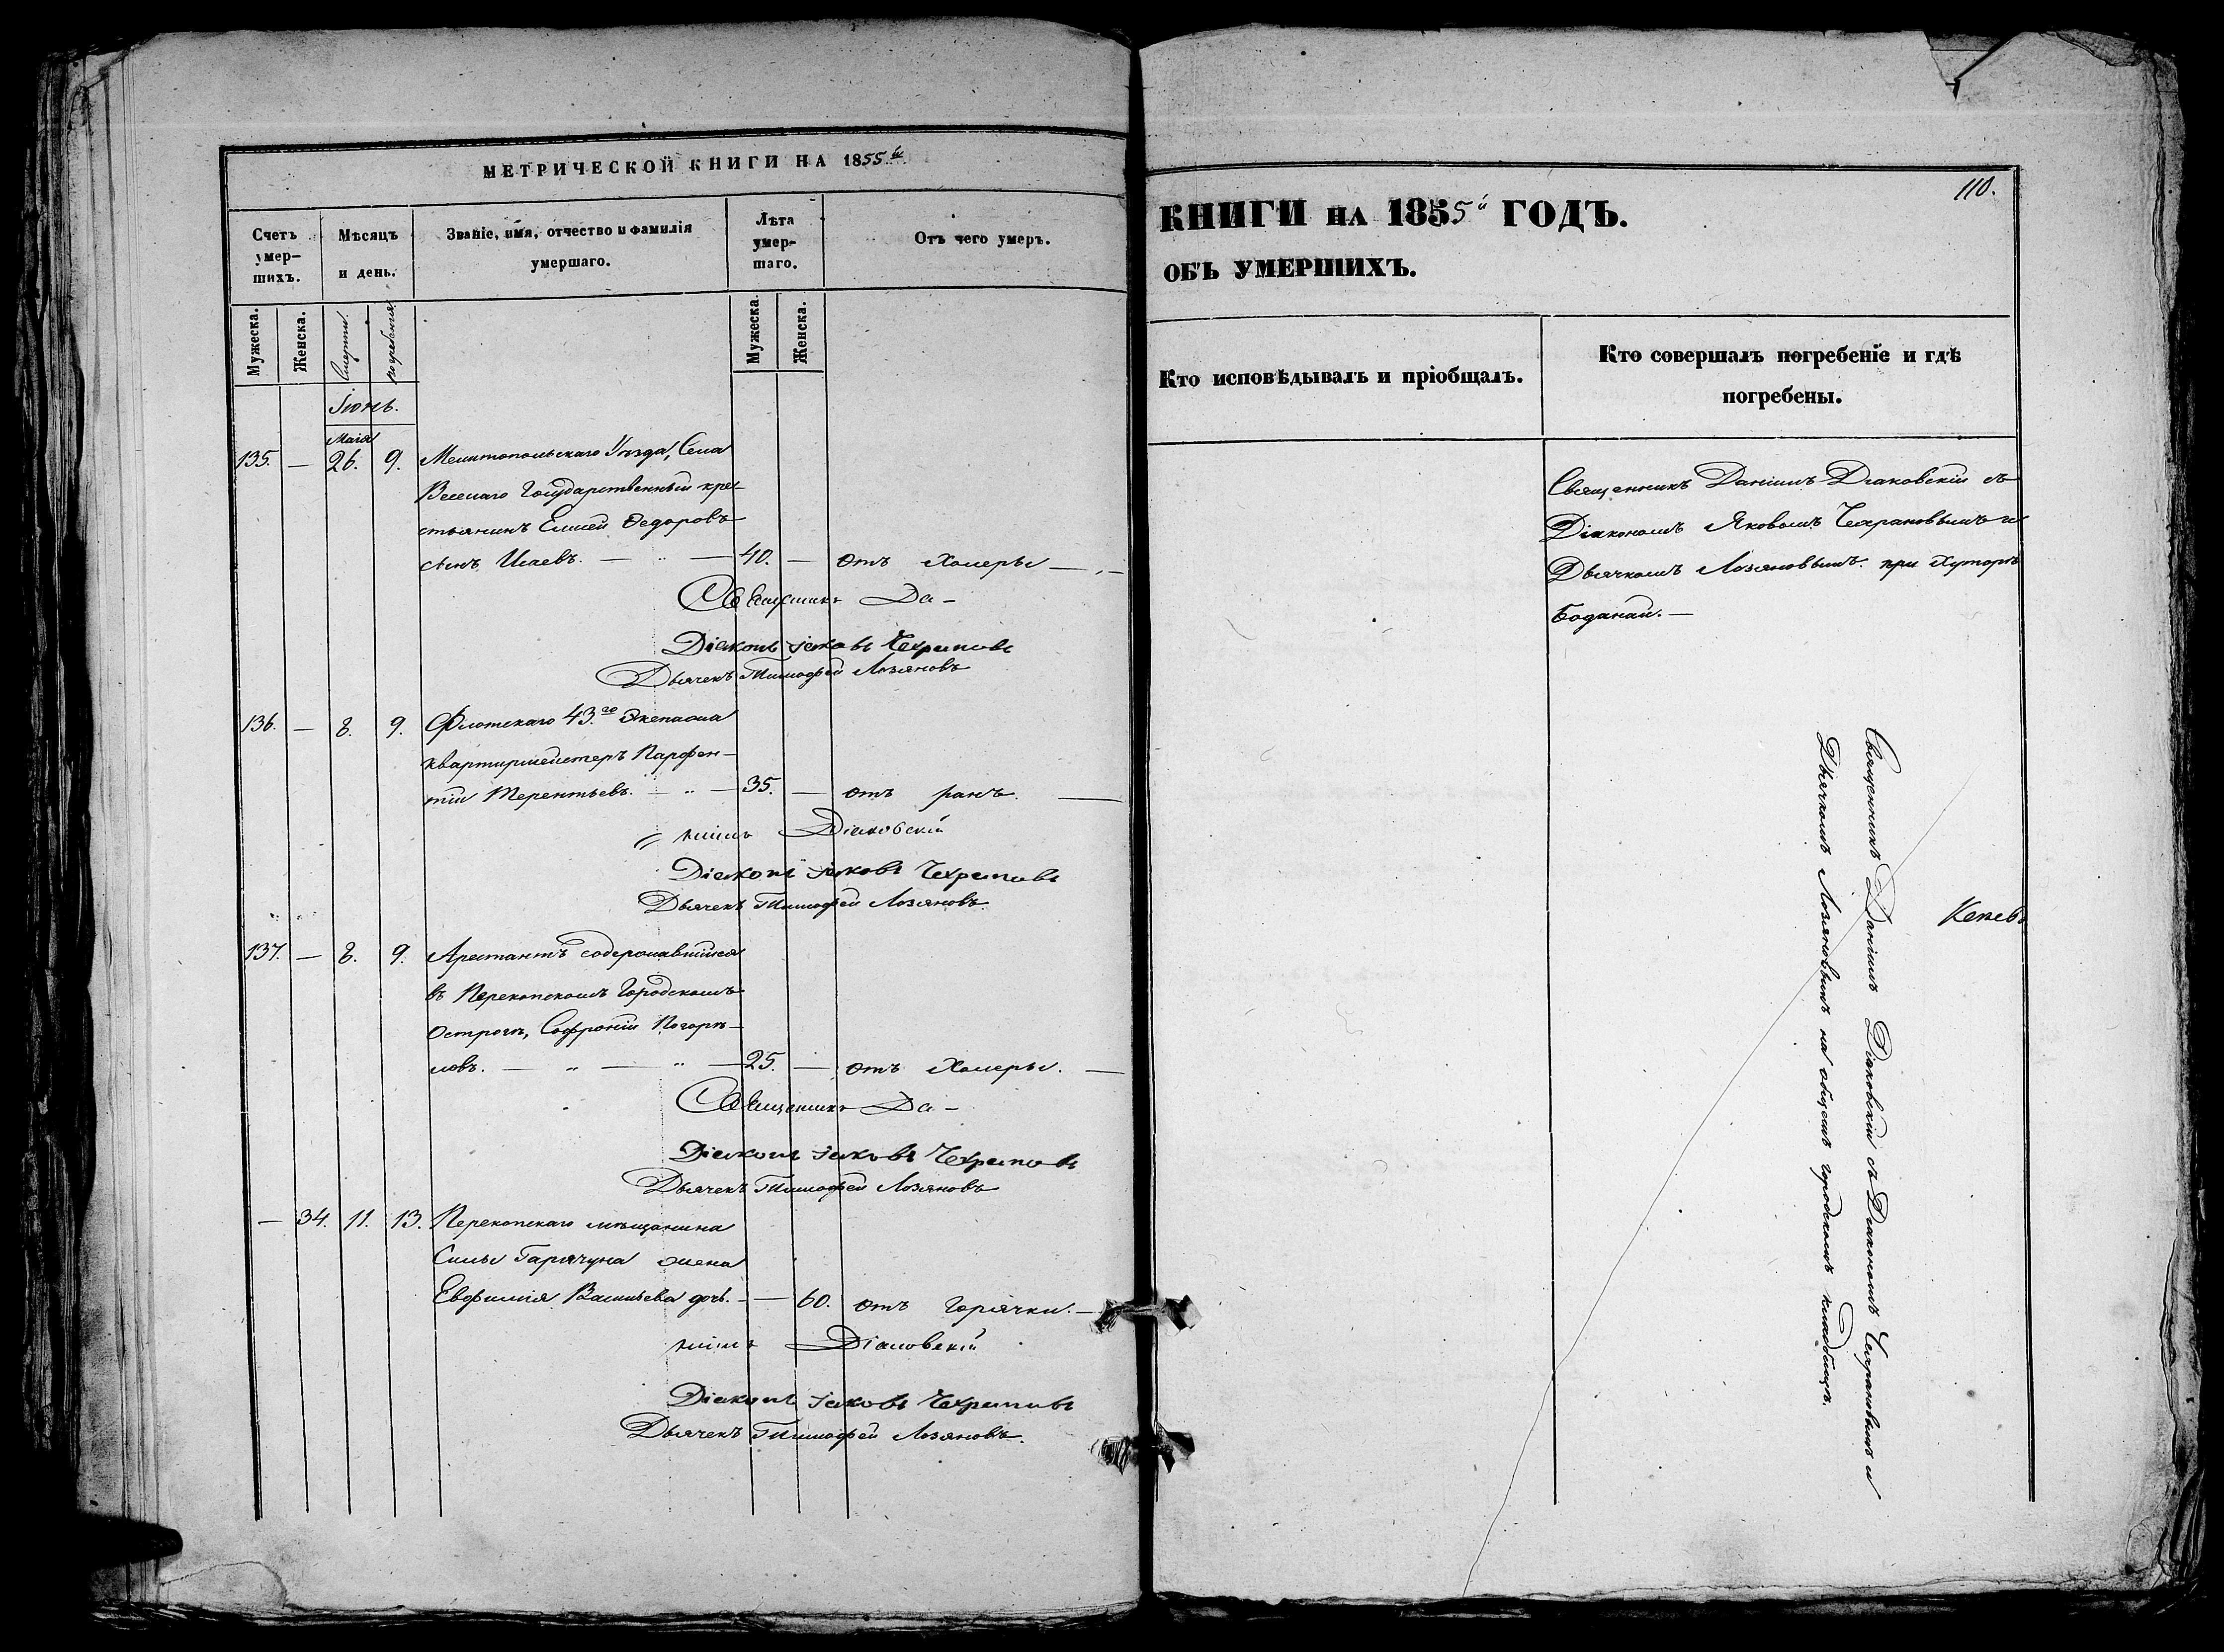 МЕТРИЧЕСКОЙ КНИГИ НА 1855й
Счетъ умер-
шихъ.
Мѣсяцъ
и день.
Званіе, имя, отчество и фамилія
умершаго.
Лѣта
умер-
шаго.
Отъ чего умеръ.
Мужеска.
Женска.
Смерти.
погребенія
Мужеска.
Женска.
Іюнь.
Маія
135. — 26. 9. Мелитопольскаго Уѣзда, Села
Веселаго Государственный кре-
стьянинъ Елисей Ѳедоровъ
сынъ Исаевъ. — 40. — отъ Холеры —
Священникъ Да-
Діаконъ Іаковъ Чехрановъ
Дьячекъ Тимофей Лозяновъ
136. — 8. 9. Флотскаго 43.го Экипажа
квартирмейстеръ Парфен-
тій Терентьевъ. — 35. — отъ ранъ. —
ніилъ Діаковскій
Діаконъ Іаковъ Чехрановъ
Дьячекъ Тимофей Лозяновъ
137. — 8. 9. Арестантъ содержавшійся
въ Перекопскомъ Городскомъ
Острогѣ, Софроній Погорѣ-
ловъ. — 25. — отъ Холеры. —
Священникъ Да-
Діаконъ Іаковъ Чехрановъ
Дьячекъ Тимофей Лозяновъ
— 34. 11. 13. Перекопскаго мѣщанина
Силы Гарячуна жена
Евфимія Васильева дочь. — 60. отъ горячки. —
ніилъ Діаковскій
Діаконъ Іаковъ Чехрановъ
Дьячекъ Тимофей Лозяновъ.
110.
КНИГИ НА 1855й ГОДЪ.
ОБЪ УМЕРШИХЪ.
Кто исповѣдывалъ и пріобщалъ.
Кто совершалъ погребеніе и гдѣ
погребены.
Священникъ Даніилъ Діаковскій съ
Діакономъ Яковомъ Чехрановымъ и
Дьячкомъ Лозяновымъ. при Хуторѣ
Боданай. —
Священникъ Даніилъ Діаковскій съ Діакономъ Чехрановымъ и
Дьячкомъ Лозяновымъ на общемъ городскомъ кладбищѣ.